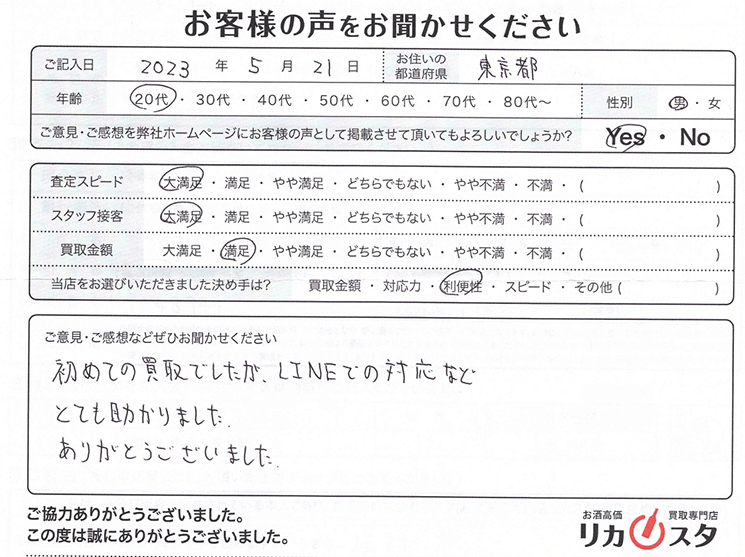 お客様の声をお聞かせください
ご記入日 2023 年 5 月 21 日 お住いの都道府県 東京都
年齢 20代・30代・40代・50代・60代・70代・80代〜 性別 男・女
ご意見・ご感想を弊社ホームページにお客様の声として掲載させて頂いてもよろしいでしょうか? Yes・No
査定スピード 大満足・満足・やや満足・どちらでもない・やや不満・不満・( )
スタッフ接客 大満足・満足・やや満足・どちらでもない・やや不満・不満・( )
買取金額 大満足・満足・やや満足・どちらでもない・やや不満・不満・( )
当店をお選びいただきました決め手は? 買取金額・対応力・利便性・スピード・その他( )
ご意見・ご感想などぜひお聞かせください
初めての買取でしたが、LINEでの対応など
とても助かりました.
ありがとうございました.
ご協力ありがとうございました。
この度は誠にありがとうございました。
お酒高価 買取専門店
リカスタ